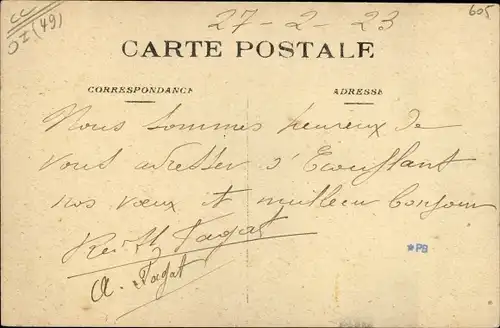 CC
OI (49)
27-2-23
605
CARTE POSTALE
CORRESPONDANCE
ADRESSE
Nous sommes heureux de
vous adresser d'Ecouflant
nos vœux et meilleur bonjour
Pagat
A. Pagat
*PB